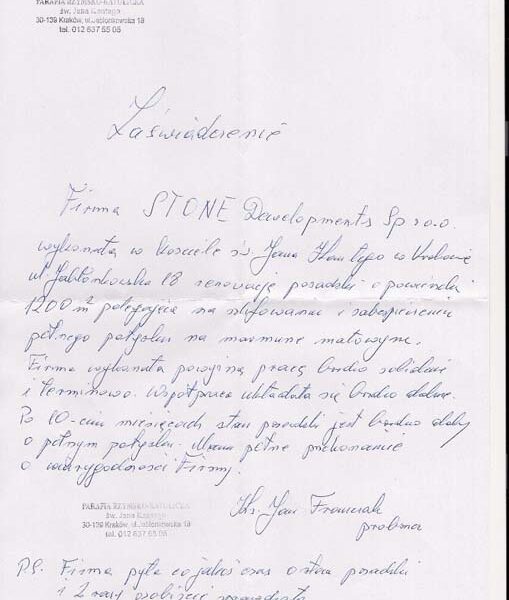 PARAFIA RZYMSKO-KATOLICKA
św. Jana Kantego
30-139 Kraków, ul. Jabłonkowska 18
tel. 012 637 55 05
Zaświadczenie
Firma STONE Dewelopments Sp z o.o.
wykonała w kościele św. Jana Kantego w Krakowie
ul Jabłonkowska 18 renowację posadzki o powierzchni
1200 m² polegającą na szlifowaniu i zabezpieczeniu
pełnego połysku na marmurze matowym.
Firma wykonała powyższą pracę bardzo solidnie
i terminowo. Współpraca układała się bardzo dobrze.
Po 10-ciu miesiącach stan posadzki jest bardzo dobry
o pełnym połysku. Mam pełne przekonanie
o wiarygodności Firmy.
PARAFIA RZYMSKO-KATOLICKA
św. Jana Kantego
30-139 Kraków, ul. Jabłonkowska 18
tel. 012 637 55 05
Ks. Jan Franczak
proboszcz
P.S. Firma pyta co jakiś czas o stan posadzki
i 2 razy osobiście